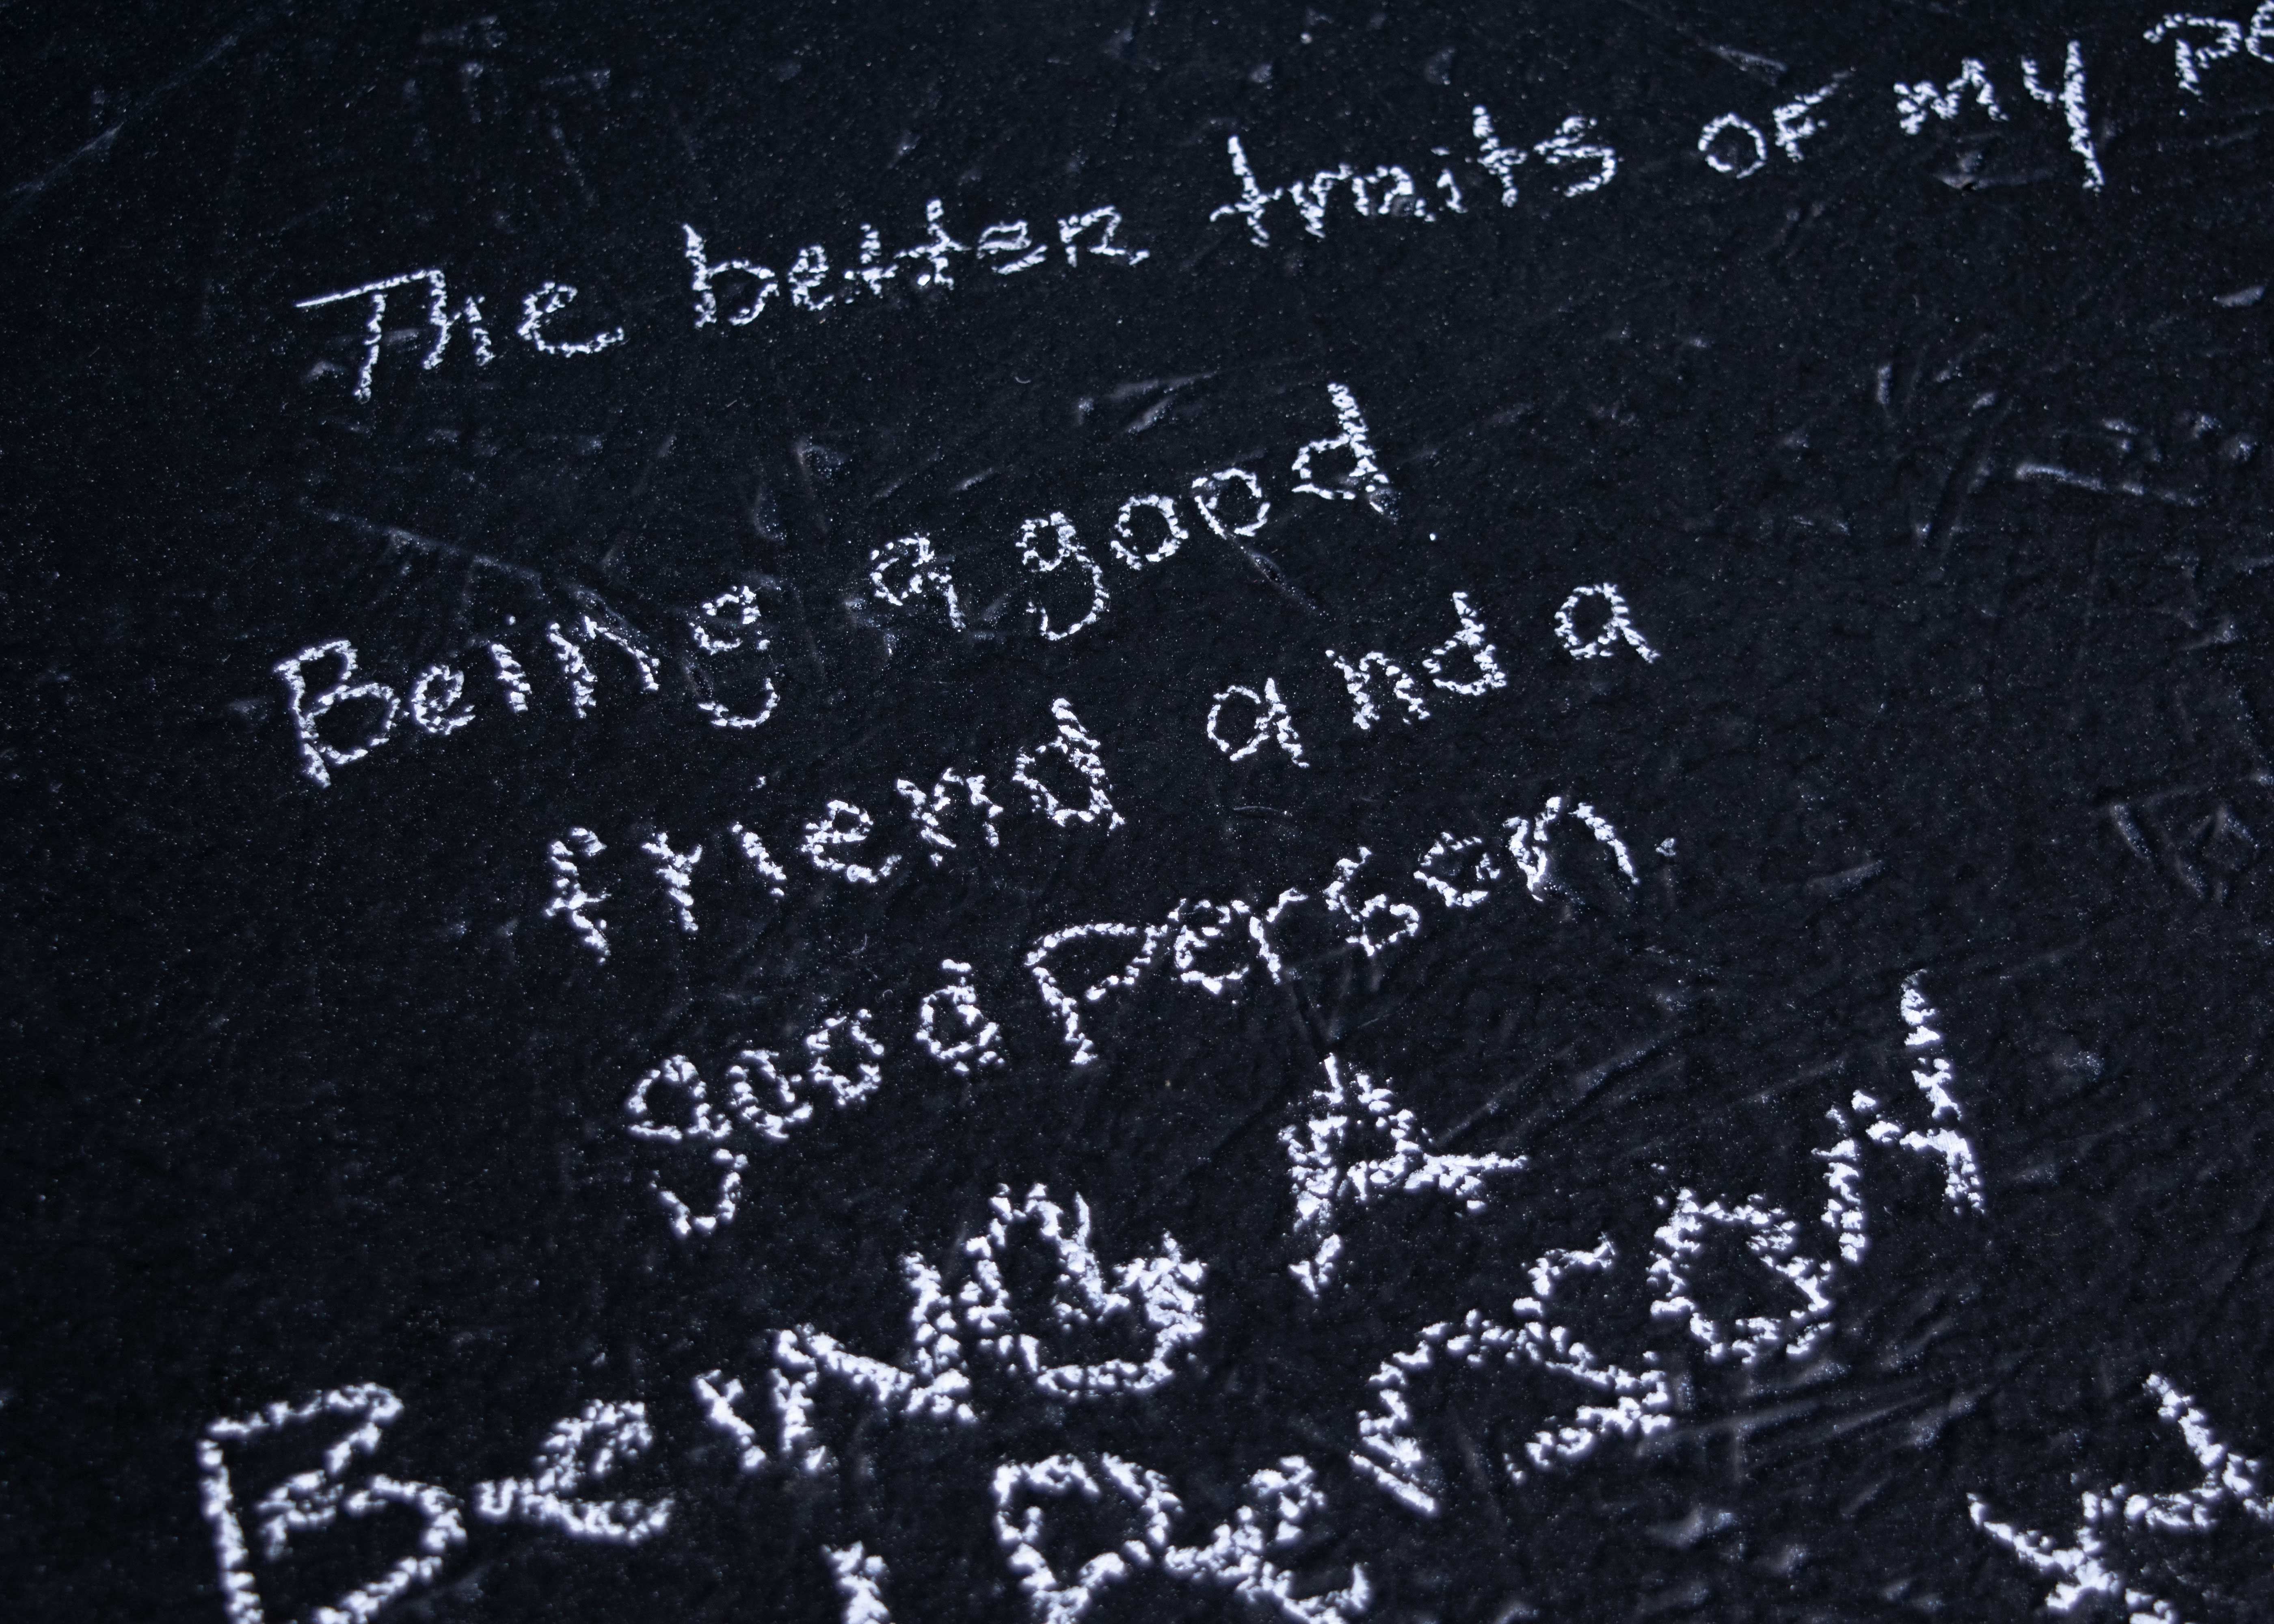 The better traits of my pe
Being a good
friend and a
good Person.
Being A
Person